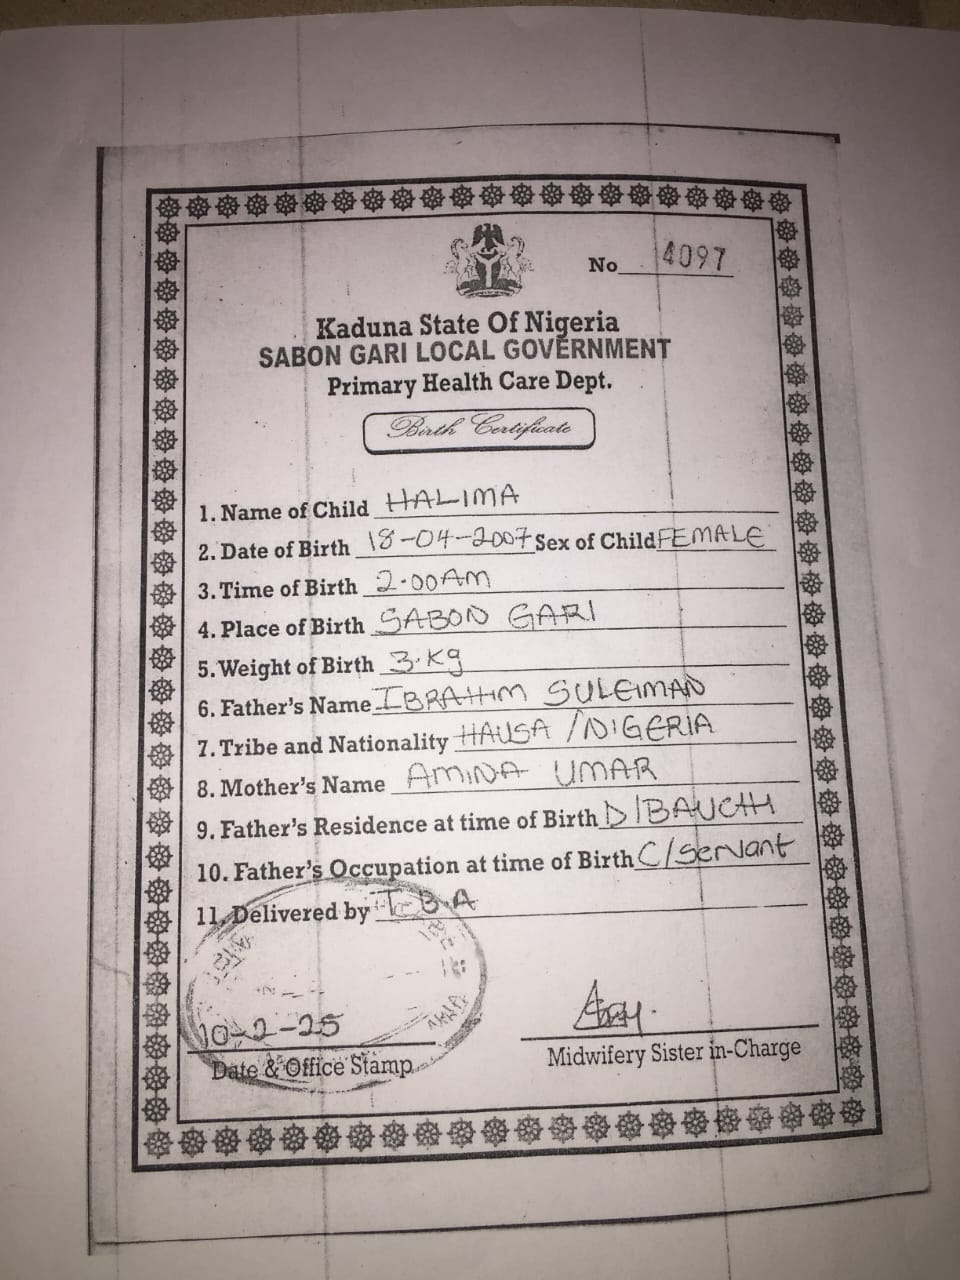 No 4097
Kaduna State Of Nigeria
SABON GARI LOCAL GOVERNMENT
Primary Health Care Dept.
Birth Certificate
1. Name of Child HALIMA
2. Date of Birth 18-04-2007 Sex of Child FEMALE
3. Time of Birth 2.00AM
4. Place of Birth SABON GARI
5. Weight of Birth 3.Kg
6. Father's Name IBRAHIM SULEIMAN
7. Tribe and Nationality HAUSA /NIGERIA
8. Mother's Name AMINA UMAR
9. Father's Residence at time of Birth D/BAUCHI
10. Father's Occupation at time of Birth C/Servant
11. Delivered by T.B.A
10-2-25
Date & Office Stamp
Midwifery Sister in-Charge